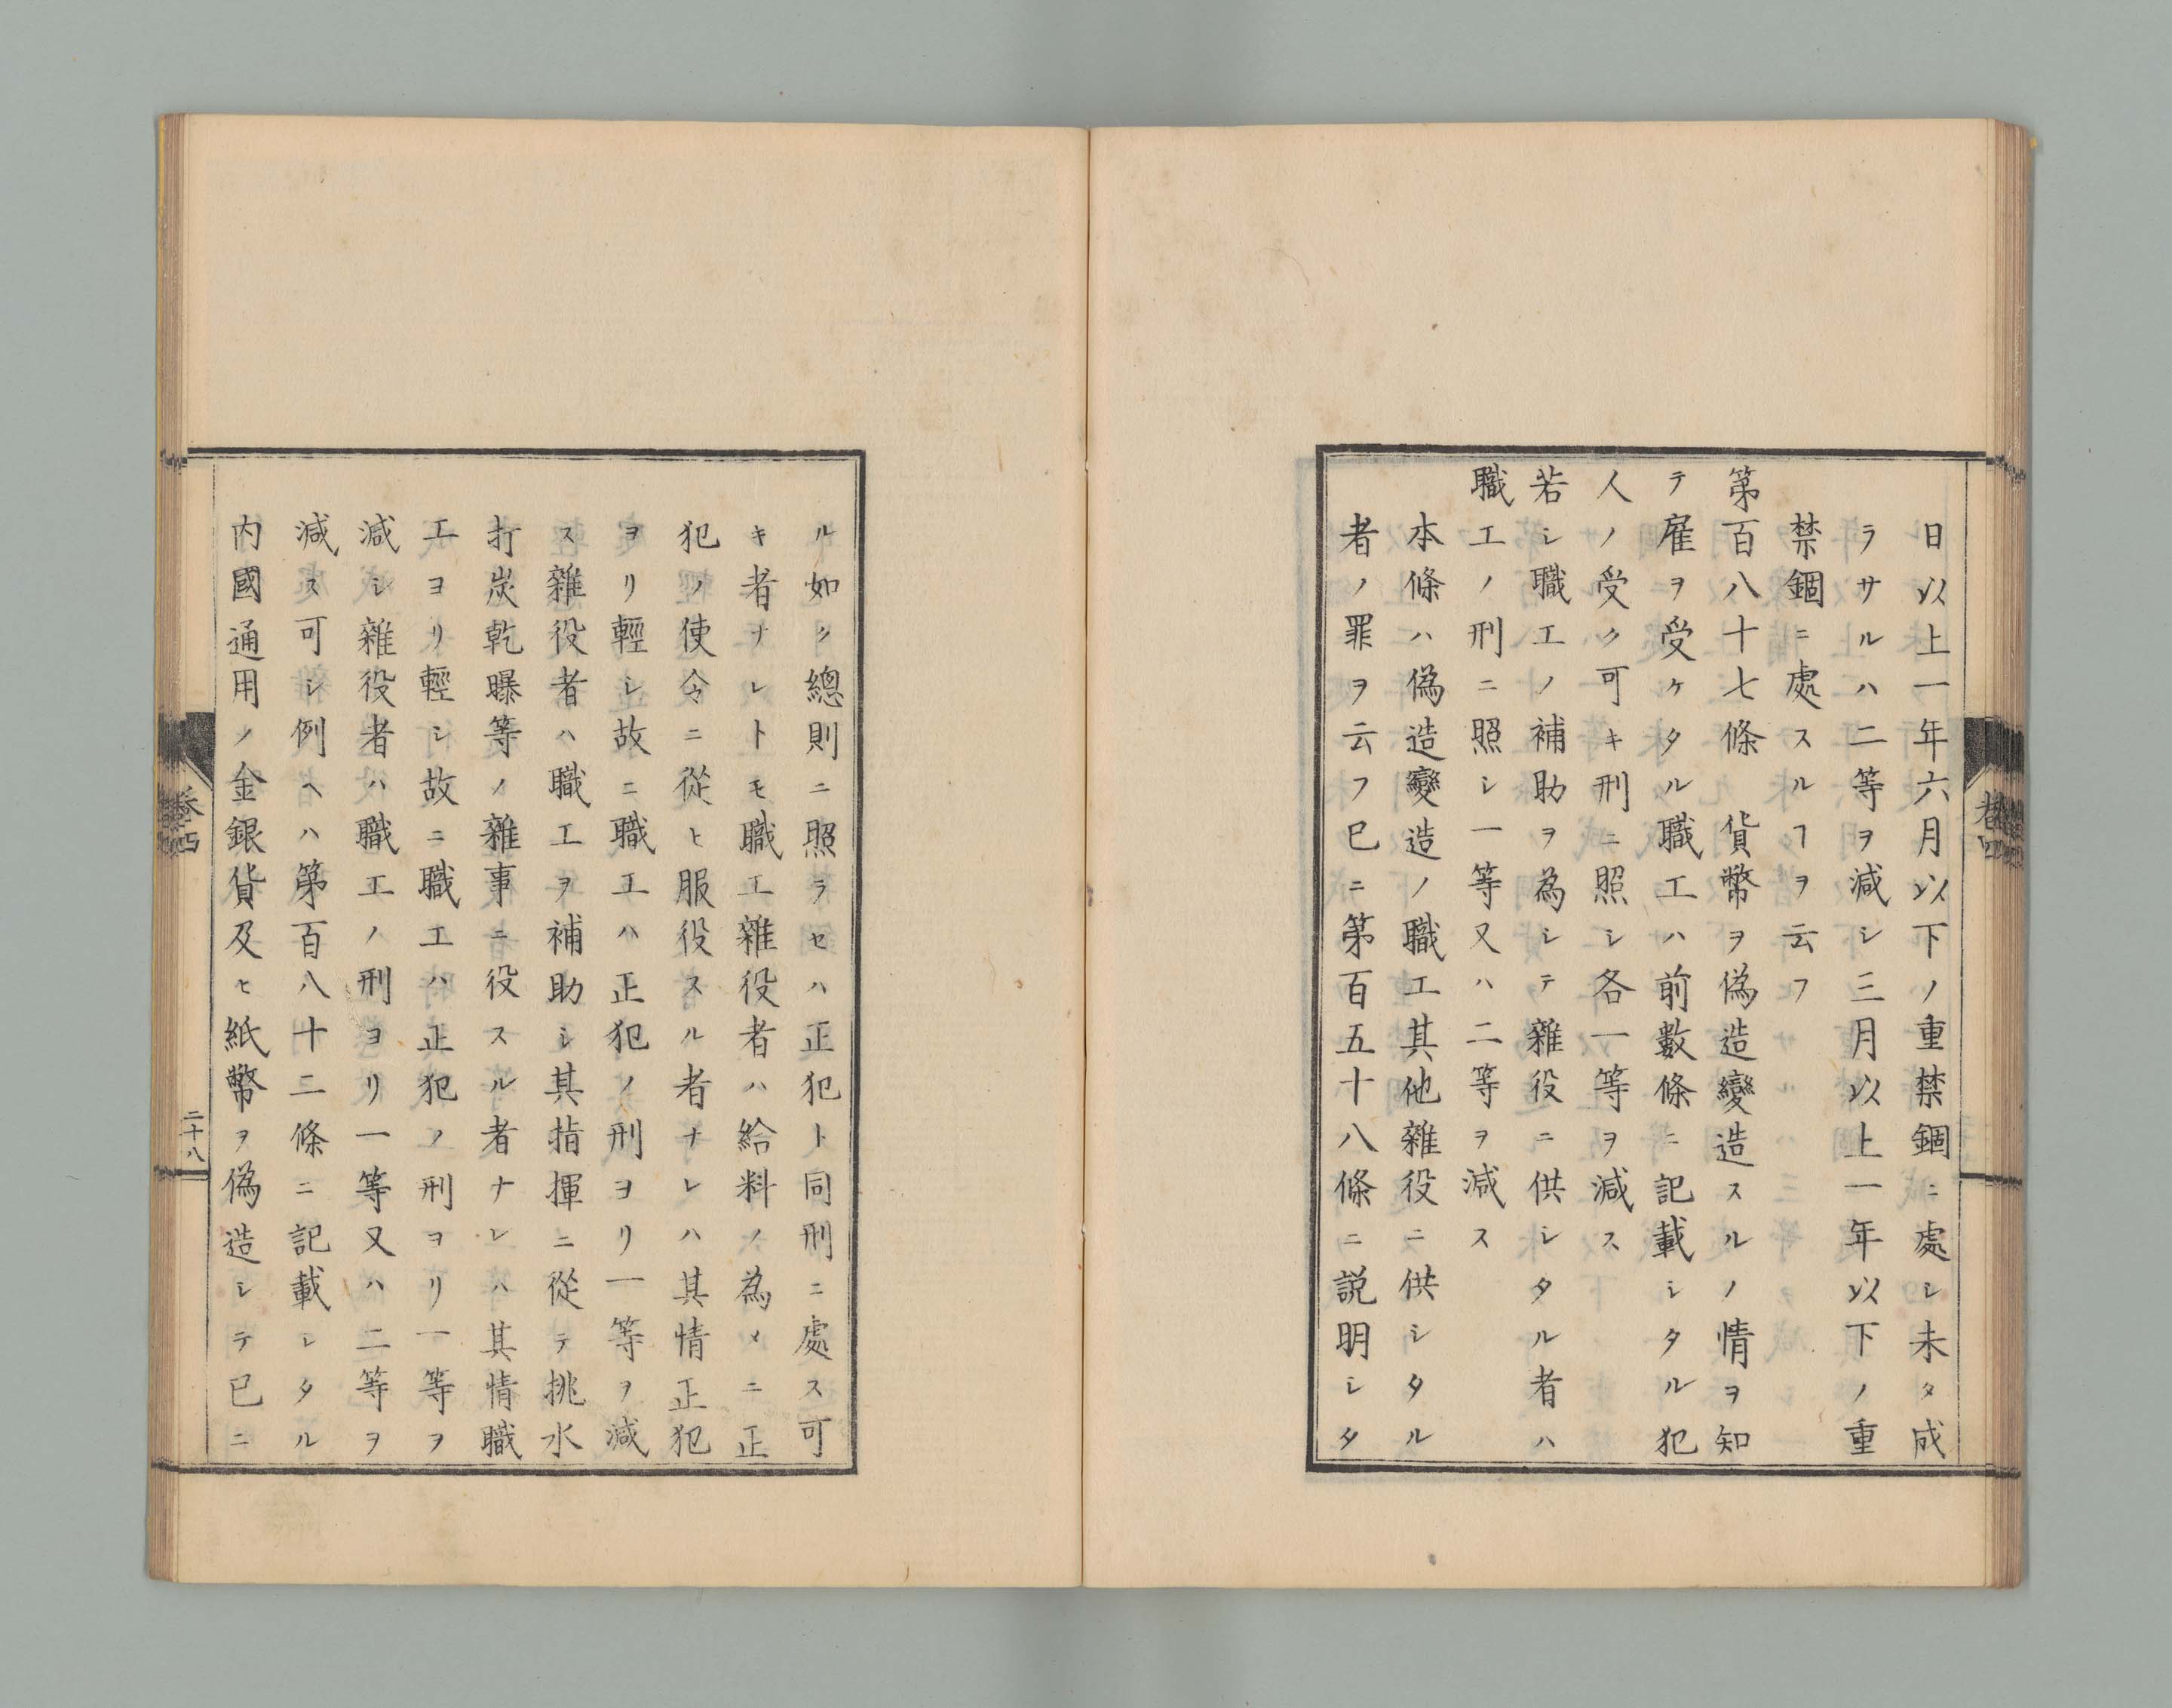 日以上一年六月以下ノ重禁錮ニ處シ未タ成
ラサルハ二等ヲ減シ三月以上一年以下ノ重
禁錮ニ處スルヿヲ云フ
第百八十七條　貨幣ヲ偽造變造スルノ情ヲ知
テ雇ヲ受ケタル職工ハ前數條ニ記載シタル犯
人ノ受ク可キ刑ニ照シ各一等ヲ減ス
若シ職工ノ補助ヲ為シテ雜役ニ供シタル者ハ
職工ノ刑ニ照シ一等又ハ二等ヲ減ス
本條ハ偽造變造ノ職工其他雜役ニ供シタル
者ノ罪ヲ云フ已ニ第百五十八條ニ説明シタ
卷四
ル如ク總則ニ照ラセハ正犯ト同刑ニ處ス可
キ者ナレトモ職工雜役者ハ給料ノ為メニ正
犯ノ使令ニ從ヒ服役スル者ナレハ其情正犯
ヨリ輕シ故ニ職工ハ正犯ノ刑ヨリ一等ヲ減
ス雜役者ハ職工ヲ補助シ其指揮ニ從テ挑水
打炭乾曝等ノ雜事ニ役スル者ナレハ其情職
工ヨリ輕シ故ニ職工ハ正犯ノ刑ヨリ一等ヲ
減シ雜役者ハ職工ノ刑ヨリ一等又ハ二等ヲ
減ス可シ例ヘハ第百八十二條ニ記載シタル
内國通用ノ金銀貨及ヒ紙幣ヲ偽造シテ已ニ
卷四
二十八